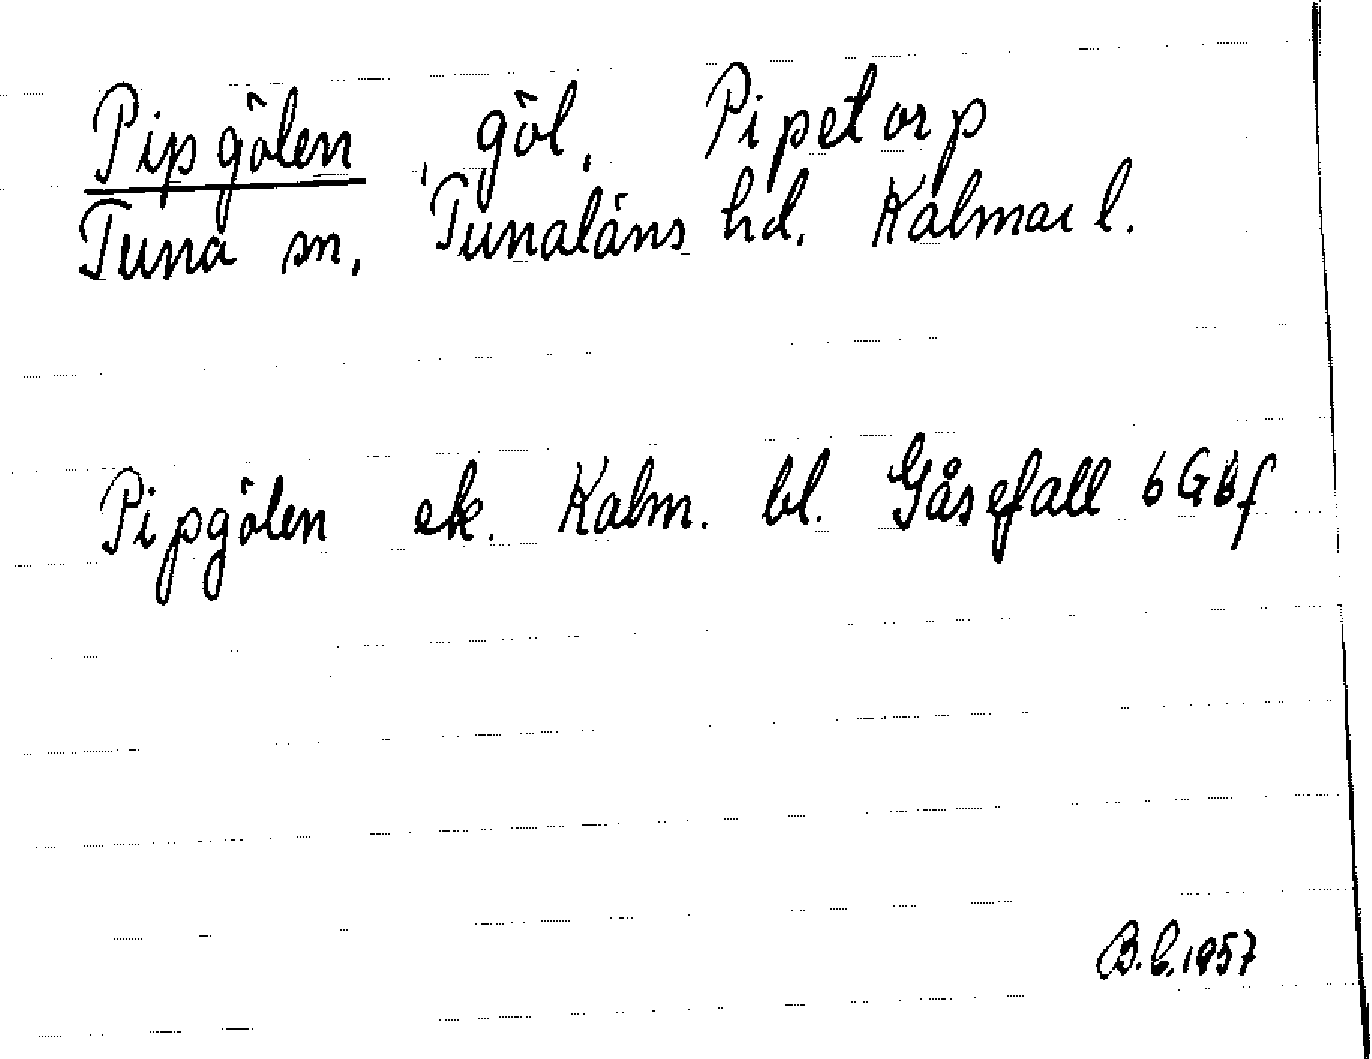 Pipgölen, göl, Pipetorp
Tuna sn, Tunaläns hd. Kalmar l.
Pipgölen ek. Kalm. bl. Gåsefall 6GBf
B.b.1957